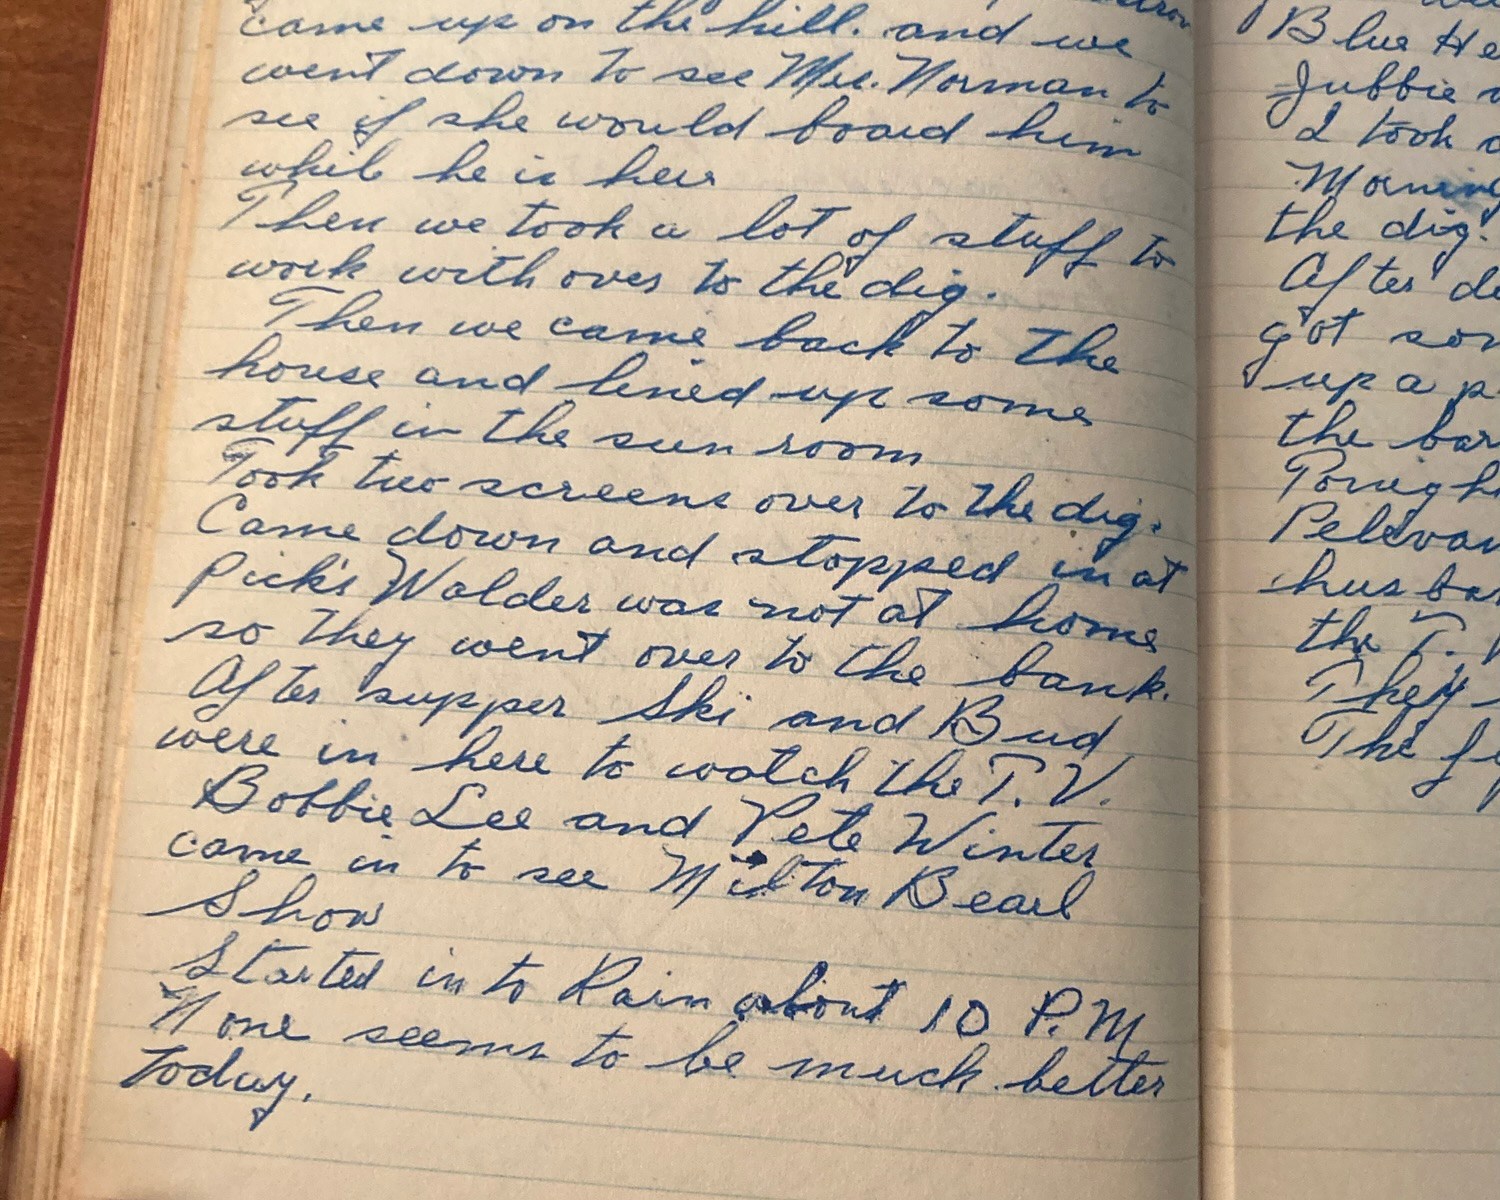 came up on the hill. and we
went down to see Mrs. Norman to
see if she would board him
while he is here
Then we took a lot of stuff to
work with over to the dig.
Then we came back to the
house and lined up some
stuff in the sun room
Took two screens over to the dig.
Came down and stopped in at
Pick's Walder was not at home
so they went over to the bank.
After supper Ski and Bud
were in here to watch the T.V.
Bobbie Lee and Pete Winter
came in to see Milton Bearl
Show
Started in to Rain about 10 P.M
None seems to be much better
today.
Blue He
Jubbie
I took
Morning
the dig.
After de
got som
up a p
the bar
Pelevan
husban
the T.
They
The